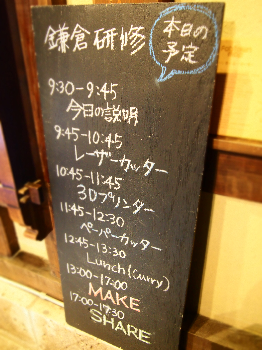 鎌倉研修
本日の
予定
9:30-9:45
今日の説明
9:45-10:45
レーザーカッター
10:45-11:45
3Dプリンター
11:45-12:30
ペーパーカッター
12:45-13:30
Lunch(curry)
13:00-17:00
MAKE
17:00-17:30
SHARE